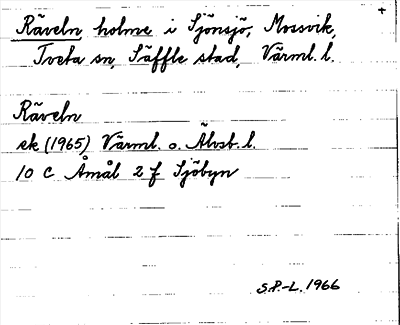 Räveln holme i Sjönsjö, Mossvik,
Tveta sn, Säffle stad, Värml. l.
Räveln
ek (1965) Värml. o. Älvsb. l.
10 C Åmål 2 f Sjöbyn
S.P.-L. 1966